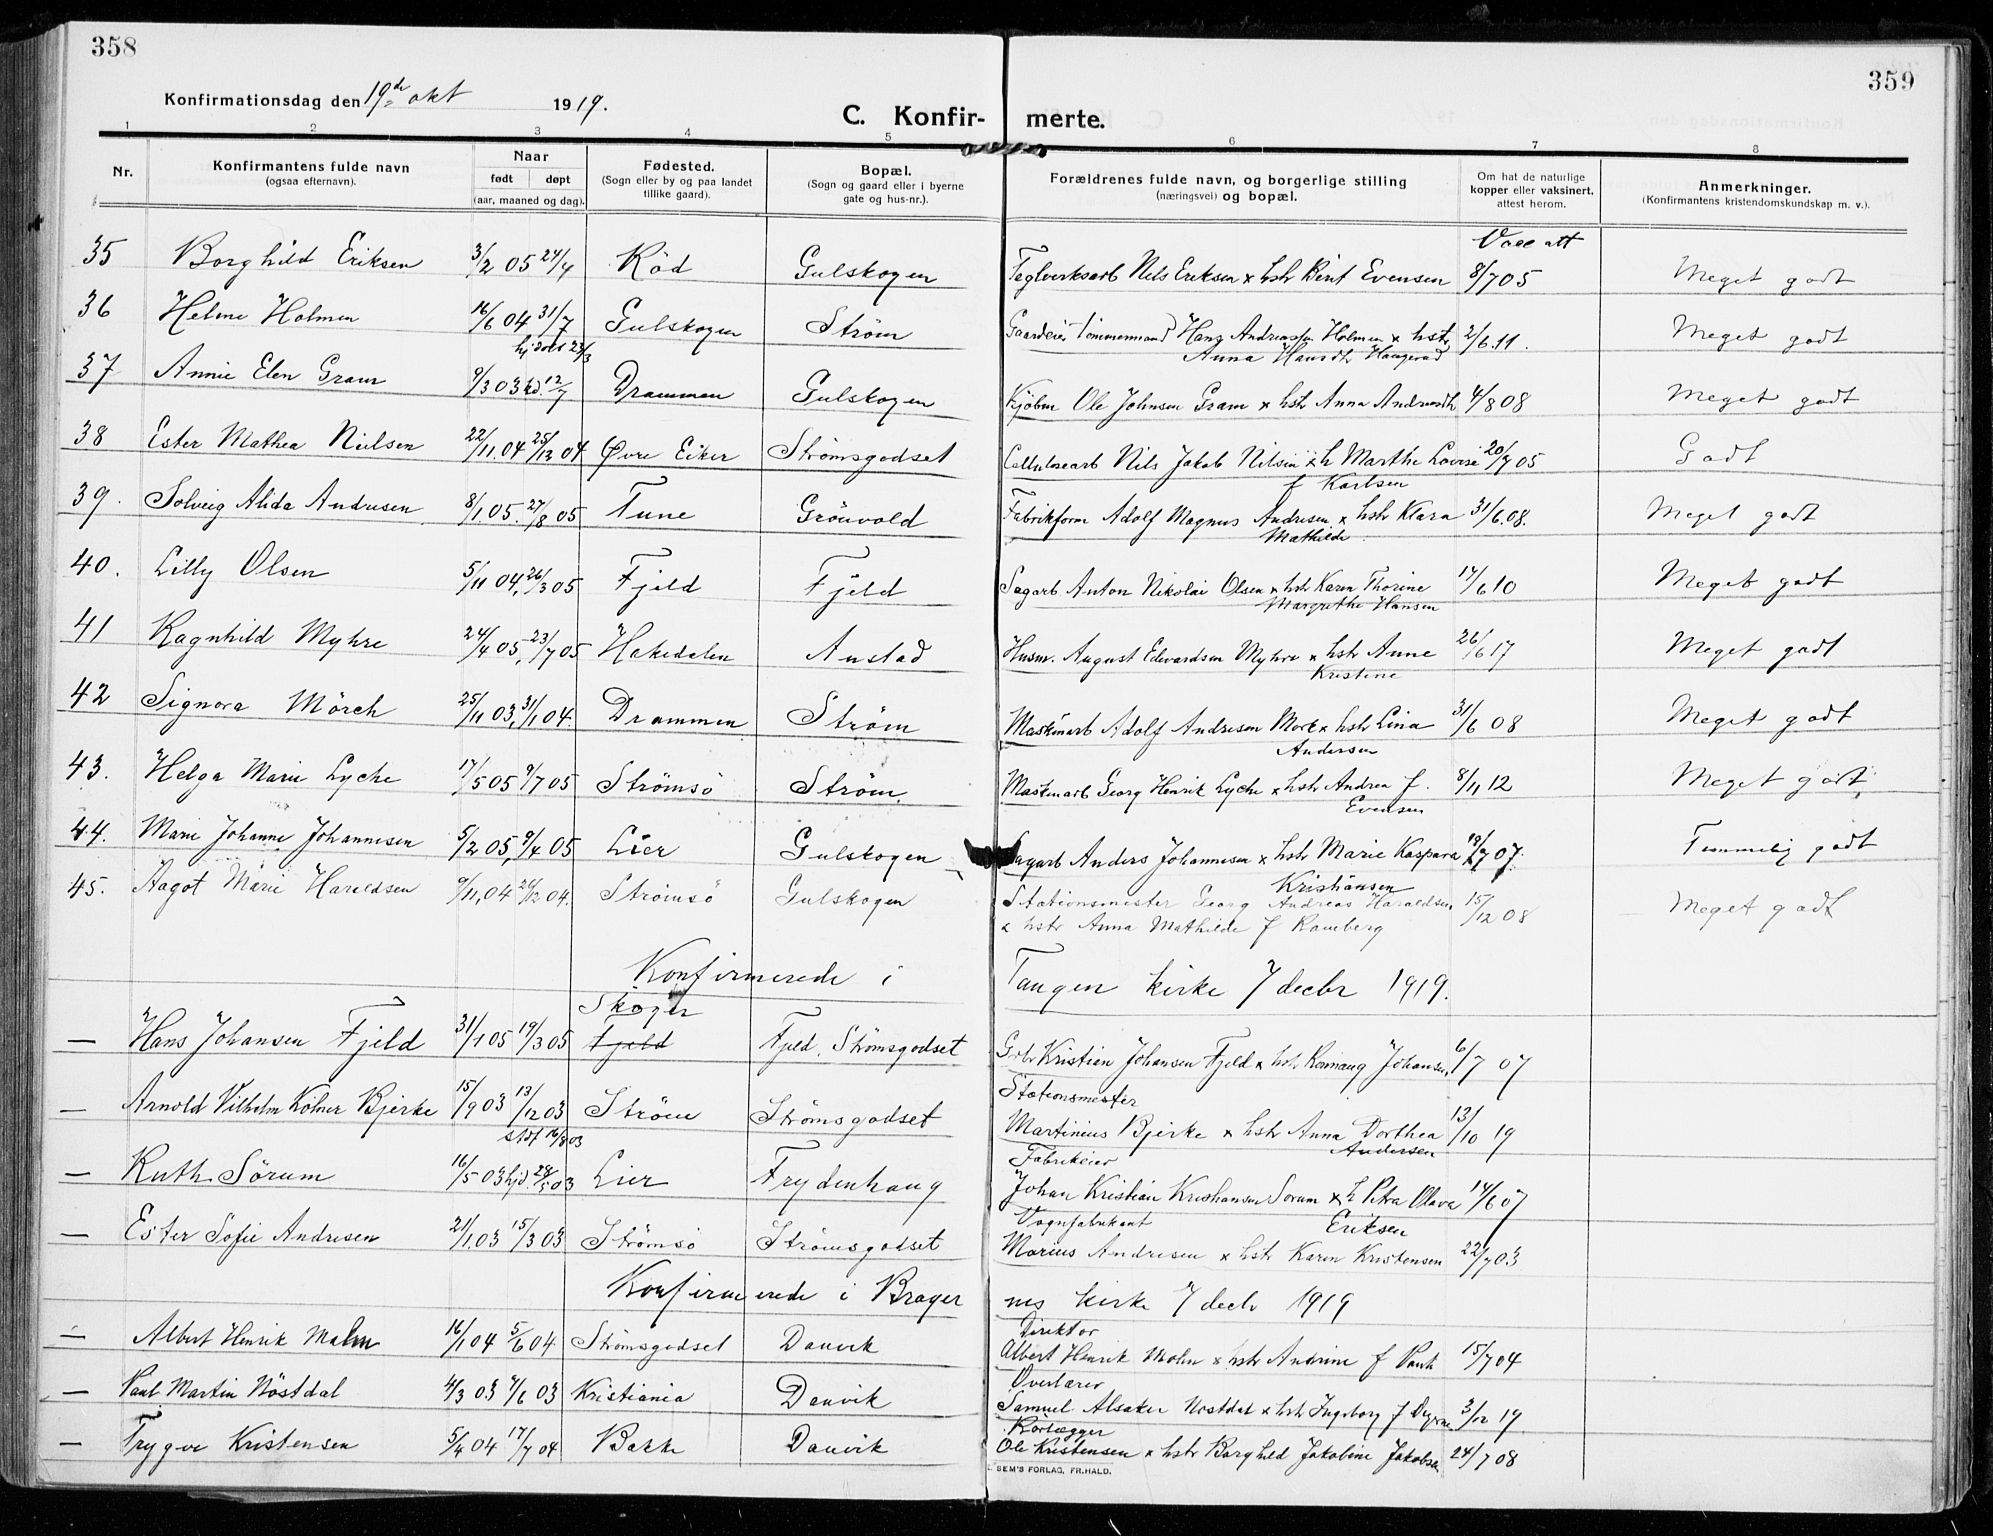 358
359
Konfirmationsdag den 19de okt 1919.
C. Konfir- merte.
1 2 3 4 5 6 7 8
Nr.
Konfirmantens fulde navn
(ogsaa efternavn).
Naar
født døpt
(aar, maaned og dag).
Fødested.
(Sogn eller by og paa landet
tillike gaard).
Bopæl.
(Sogn og gaard eller i byerne
gate og hus-nr.).
Forældrenes fulde navn, og borgerlige stilling
(næringsvei) og bopæl.
Om hat de naturlige
kopper eller vaksinert,
attest herom.
Anmerkninger.
(Konfirmantens kristendomskundskap m. v.).
Vacc att
35 Borghild Eriksen 3/2 05 24/4 Röd Gulskogen Teglverksarb Nils Eriksen x hstr Berit Evensen 8/7 05 Meget godt
36 Helene Holmen 16/6 04 31/7 Gulskogen Strøm Gaardeier Tømmermand Hans Andreassen Holmen x hstr 2/6.11. Meget godt
hj döbt 23/3 Anna Hansdtr Haugerud
37 Annie Elen Gram 9/3 03 kd. 12/7 Drammen Gulskogen Kjöbm Ole Johnsen Gram x hstr Anna Andreasdtr 4/8 08 Meget godt
38 Ester Mathea Nielsen 22/11.04 25/12 04 Øvre Eiker Strømsgodset Cellulosearb Nils Jakob Nilsen x h Marthe Lovise 20/7 05 Godt
f Karlsen
39. Solveig Alida Andresen 8/1.05. 27/8 05 Tune Grönvold Fabrikform Adolf Magnus Andresen x hstr Klara 31/6.08. Meget godt
Mathilde
40. Lilly Olsen 5/11 04, 26/3 05 Fjeld Fjeld Sagarb Anton Nikolai Olsen x hstr Karen Thorine 17/6 10 Meget godt
Margrethe Hansen
41 Ragnhild Myhre 24/4 05, 23/7 05 Hakedalen Austad Husm. August Edvardsen Myhre x hstr Anne 26/6 17 Meget godt
Kristine
42 Signora Mörch 25/11 03, 31/1 04. Drammen Strøm Maskinarb Adolf Andresen Mork x hstr Lina 31/6 08 Meget godt
Andersen
43. Helga Marie Lyche 17/5 05 9/7 05 Strømsö Strøm Maskinarb Georg Henrik Lyche x hstr Andrea f. 8/11 12 Meget godt,
Evensen
44. Marie Johanne Johannesen 5/2 05, 9/4 05 Lier Gulskogen Sagarb Anders Johannesen x hstr Marie Kaspara 19/7 07. Temmelig godt
Kristiansen
45. Aagot Marie Haraldsen 9/11,04 26/12 04. Strømsö Gulskogen Stationsmester Georg Andreas Haraldsen 15/12 08 Meget godt
x hstr Anna Mathilde f Ramberg
Konfirmerede i Tangen kirke 7 decbr 1919.
Skoger
— Hans Johansen Fjeld 31/1 05 19/3 05 Fjeld Fjeld, Strømsgodset Gbr Kristian Johansen Fjeld x hstr Rannaug Johansen 6/7 07
Stationsmester
— Arnold Vilhelm Kölner Bjerke 15/9 03 13/12 03 Strøm Strømsgodset Martinius Bjerke x hstr Anna Dorthea 13/10 19
stdf 16/8 03 Andersen
Fabrikeier
— Ruth Sörum 16/5 03 hjd. 28/5 03 Lier Frydenhaug Johan Kristian Kristiansen Sorum x h Petra Olava 14/6 07
Vognfabrikant Eriksen
— Ester Sofie Andresen 21/1.03 15/3 03 Strømsö Strømsgodset Marius Andresen x hstr Karen Kristensen 22/7 03
Konfirmerede i Brager nes kirke 7 decbr 1919
Direktør
— Albert Henrik Mohn 16/1 04 5/6 04 Strømsgodset Danvik Albert Henrik Mohn x hstr Andrine f 15/7 04
Overlærer
— Paul Martin Nöstdal 4/3 03 7/6 03 Kristiania Danvik Samuel Alsaker Nostdal x hstr Ingeborg f 3/12 19.
Rörlægger
— Trygve Kristensen 5/4 04 17/7 04 Bakke Danvik Ole Kristensen x hstr Borghild Jakobine Jakobsen 24/7 08
SEM'S FORLAG, FR.HALD.